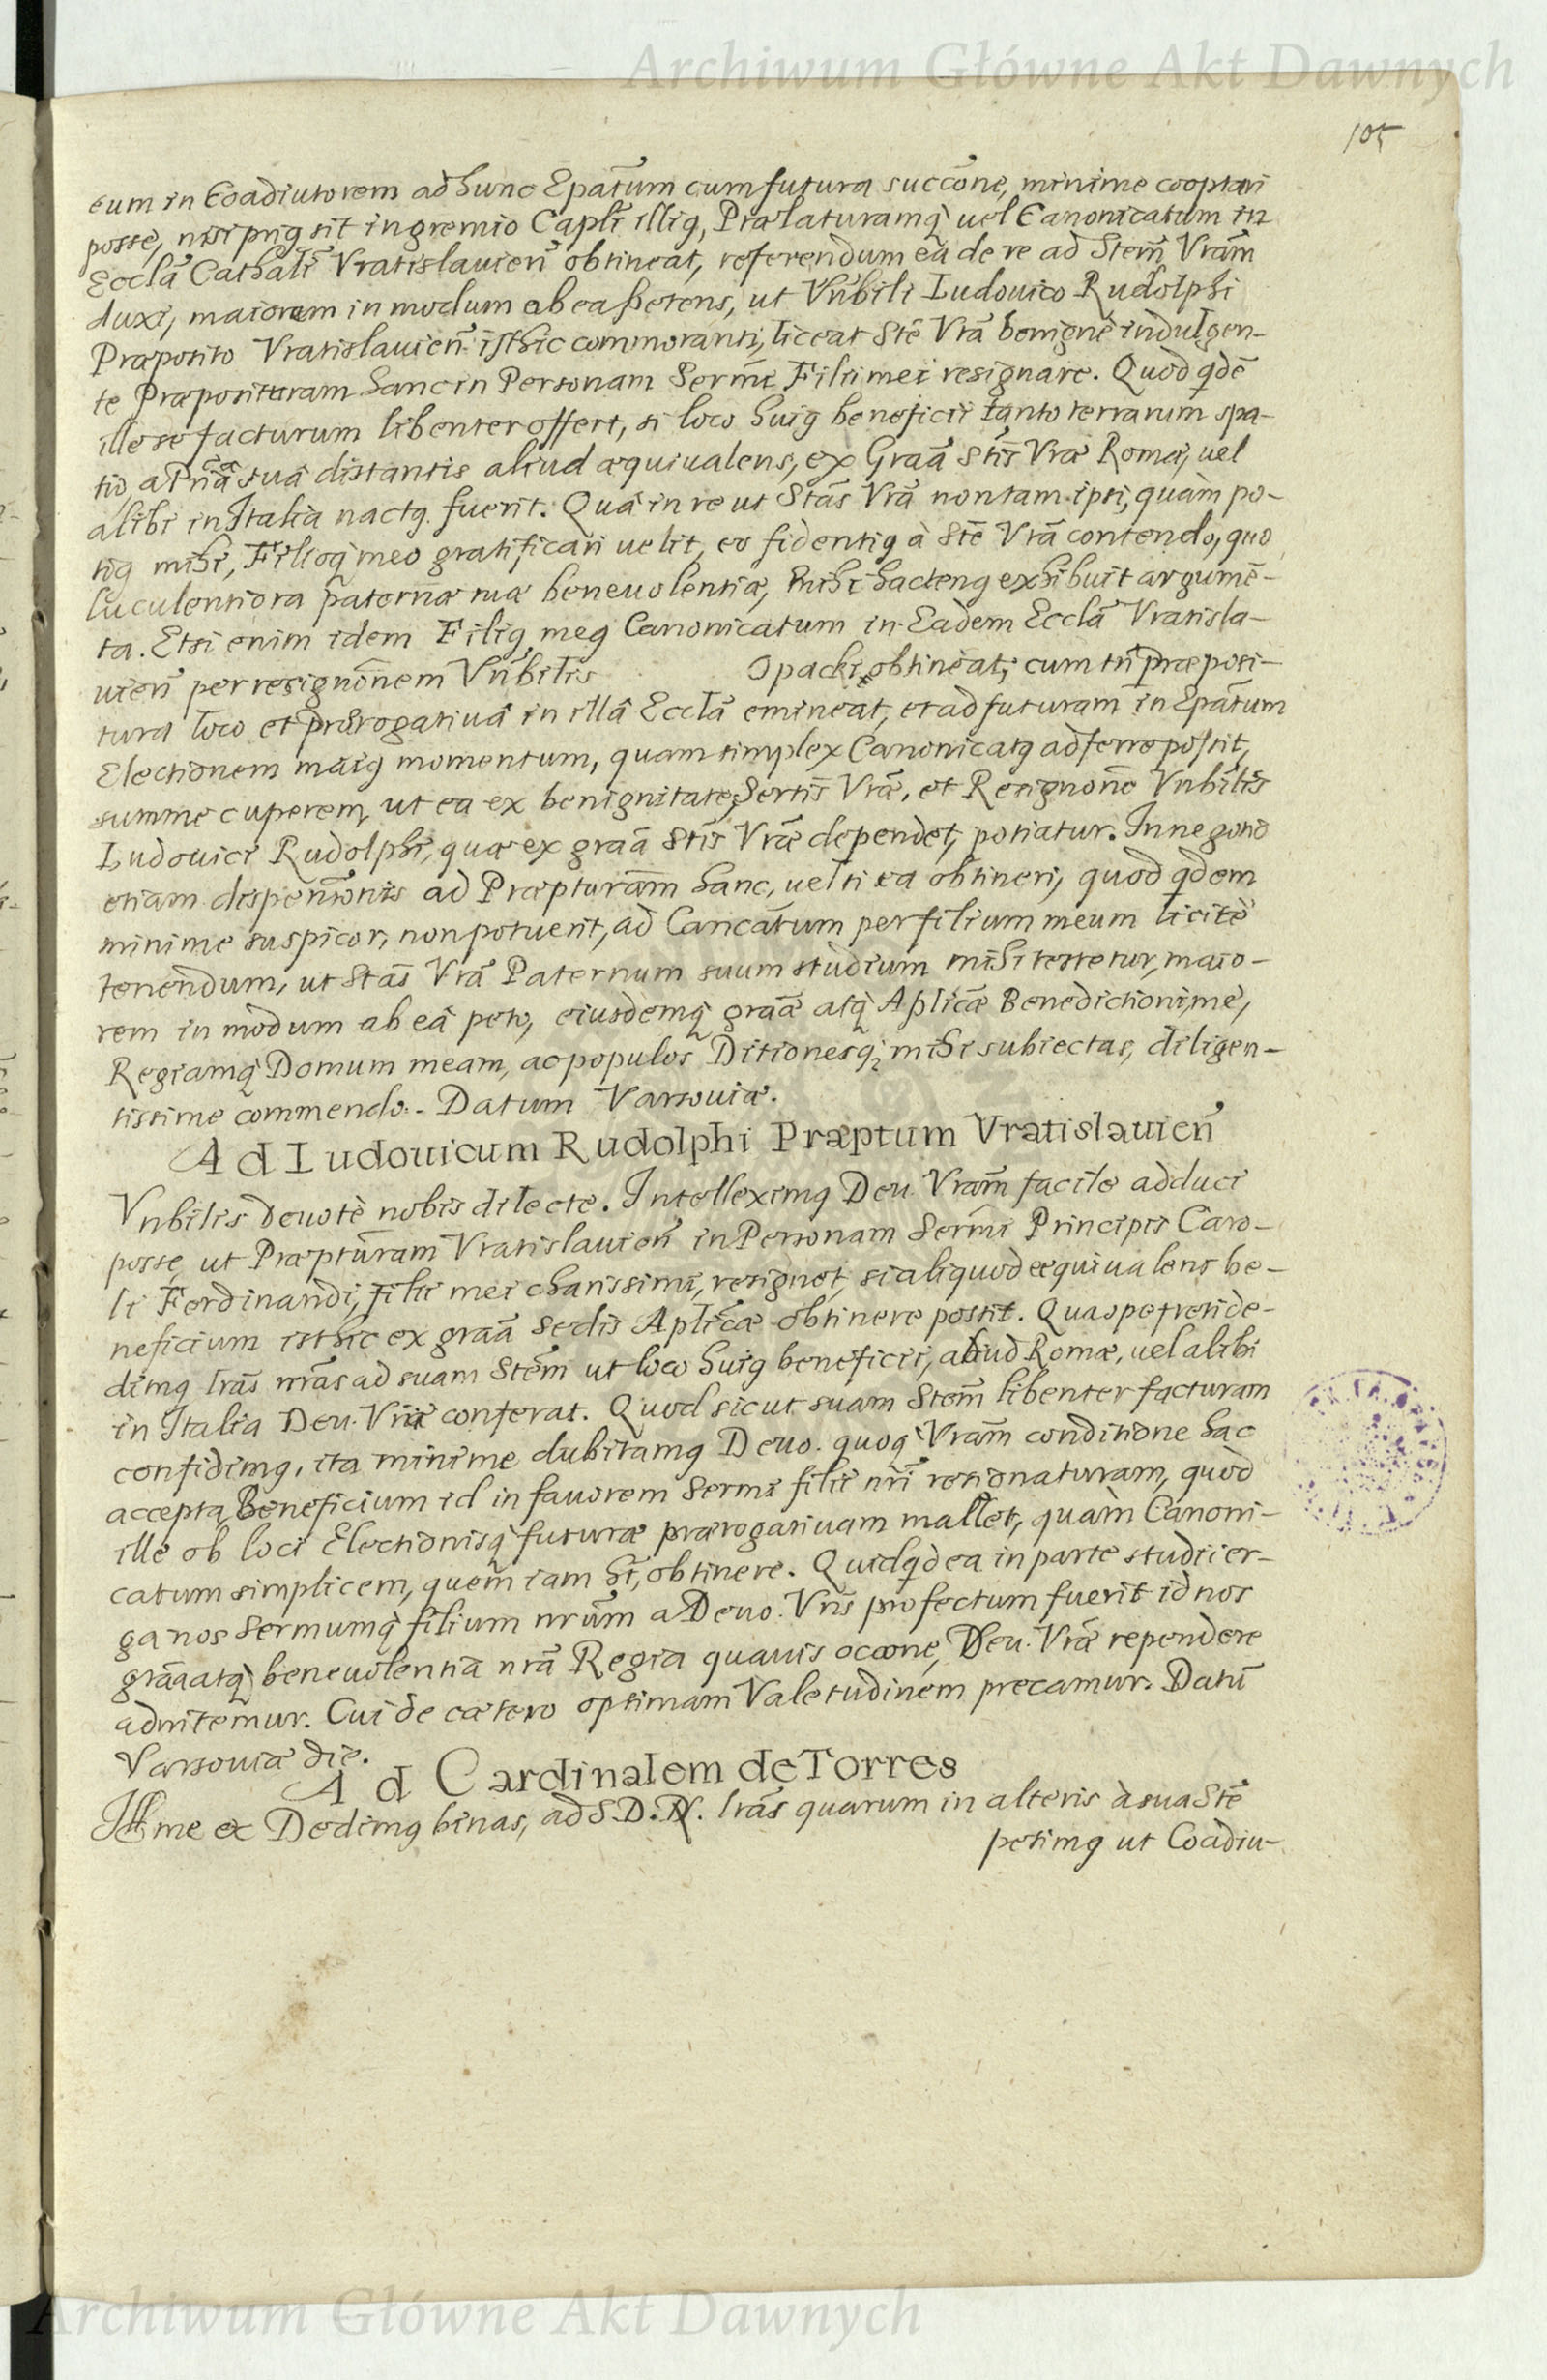 Archiwum Główne Akt Dawnych
105
eum in Coadiutorem ad hunc Epātum cum futura succōne, minime cooptari
posse, nisi priꝯ sit in gremio Capłi illiꝯ, Prælaturamq̨ uel Canonicatum in
Ecclā Cathałi Vratislauień obtineat, referendum eâ de re ad Stem̄ Vrām
duxi, maiorem in modum ab ea petens, ut Vn̄bili Ludouico Rudolphi
Præposito Vratislauień isthic commoranti, liceat Stē Vrā benignè indulgen-
te Præposituram hanc in Personam Serm̄i Filii mei resignare. Quod qdē
ille se facturum libenter offert, si loco huiꝯ beneficii tanto terrarum spa-
tio, a Pn̄a suâ distantis aliud æquiualens, ex Grāa Stīs Vræ Romæ, uel
alibi in Italia nactꝯ fuerit. Quâ in re ut Stās Vrā non tam ipsi, quàm po-
tiꝯ mihi, Filioq̨ meo gratificari uelit, eo fidentiꝯ à Stē Vrā contendo, quo
luculentiora paternæ suæ beneuolentiæ, mihi hactenꝯ exhibuit argumē-
ta. Etsi enim idem Filiꝯ meꝯ Canonicatum in Eadem Ecclā Vratisla-
uień per resignōnem Vn̄bilis Opacki obtineat; cum tn̄ præposi-
tura loco et prærogatiuâ in illâ Ecclā emineat, et ad futuram in Epātum
Electionem maiꝯ momentum, quam simplex Canonicatꝯ adferre possit,
summe cuperem, ut ea ex benignitate Sertīs Vræ, et Resignōne Vn̄bilis
Ludouici Rudolphi, quæ ex grāa Stīs Vræ dependet, potiatur. In negotio
etiam dispen̄onis ad Præpturām hanc, uel si ea obtineri, quod qdem
minime suspicor, non potuerit, ad Cancātum per filium meum licitè
tenendum, ut Stās Vrā Paternum suum studium mihi testetur, maio-
rem in modum ab eâ peto, eiusdemq̨ grāæ atq̨ Aplicæ Benedictioni, me,
Regiamq̨ Domum meam, ac populos Ditionesq̨ mihi subiectas, diligen-
tissime commendo. Datum Varsouiæ.
Ad Ludouicum Rudolphi Præptum Vratislauień
Vnbilis Deuotè nobis dilecte. Intelleximꝯ Deu. Vrām facile adduci
posse, ut Præptūram Vratislauień in Personam Serm̄i Principis Caro-
li Ferdinandi, filii mei charissimi, resignet, si aliquod æquiualens be-
neficium isthic ex grāa Sedis Aplicæ obtinere possit. Qua spe freti de-
dimꝯ lrās nrās ad suam Stēm ut loco huiꝯ beneficii, aliud Romæ, uel alibi
in Italia Deu. Vræ conferat. Quod sicut suam Stem̄ libenter facturam
confidimꝯ, ita minime dubitamꝯ Deuo. quoq̨ Vrām conditione hac
accepta, Beneficium id in fauorem Sermi filii nrī resignaturam, quod
ille ob loci Electionisq̨ futuræ prærogatiuam mallet, quàm Canoni-
catum simplicem, quem iam ht̄, obtinere. Quidqd ea in parte studii er-
ga nos Sermumq̨ filium nrūm a Deuo. Vrīs profectum fuerit id nos
grāa atq̨ beneuolentiâ nrā Regia quauis occōne, Deu. Vræ rependere
adnitemur. Cui de cætero optimam Valetudinem precamur. Datū
Varsouiæ die.
Ad Cardinalem de Torres
Illme ex Dedimꝯ binas, ad S.D.N. lrās quarum in alteris à sua Stē
petimꝯ ut Coadiu-
Archiwum Główne Akt Dawnych